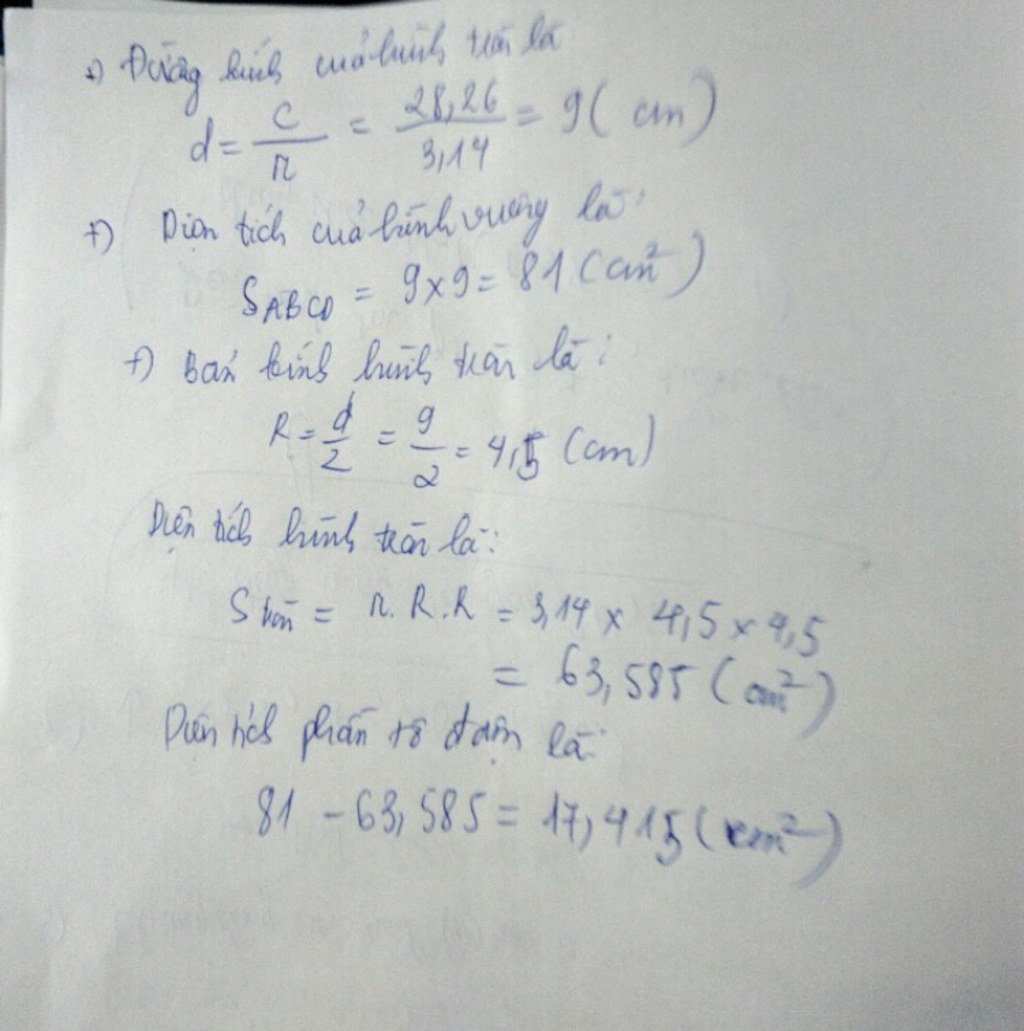 +) Đường kính của hình tròn là
d = C/π = 28,26/3,14 = 9 ( cm )
+) Diện tích của hình vuông là:
S ABCD = 9 x 9 = 81 ( cm² )
+) Bán kính hình tròn là:
R = d/2 = 9/2 = 4,5 (cm)
Diện tích hình tròn là:
S tròn = π . R . R = 3,14 x 4,5 x 4,5
= 63,585 ( cm² )
Diện tích phần tô đậm là:
81 - 63,585 = 17,415 ( cm² )